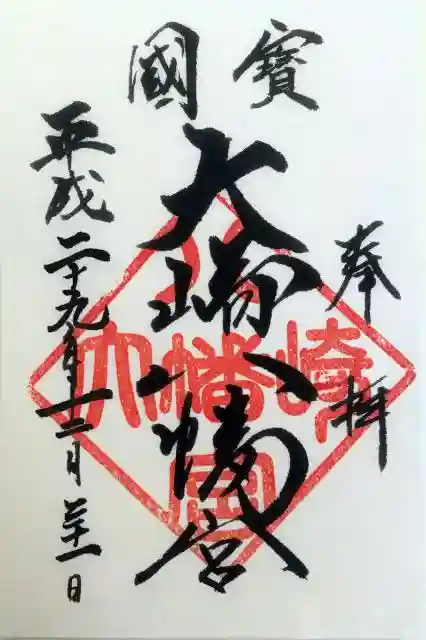 國寶
奉拝
大崎八幡宮
平成二十九年十二月廿一日
大崎八幡宮